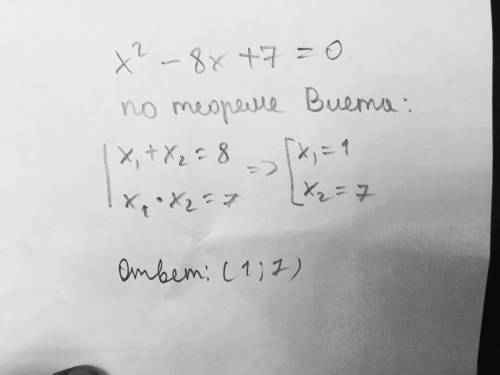 x² - 8x + 7 = 0
по теореме Виета:
x₁ + x₂ = 8
x₁ · x₂ = 7 => [x₁ = 1
x₂ = 7
Ответ: (1; 7)